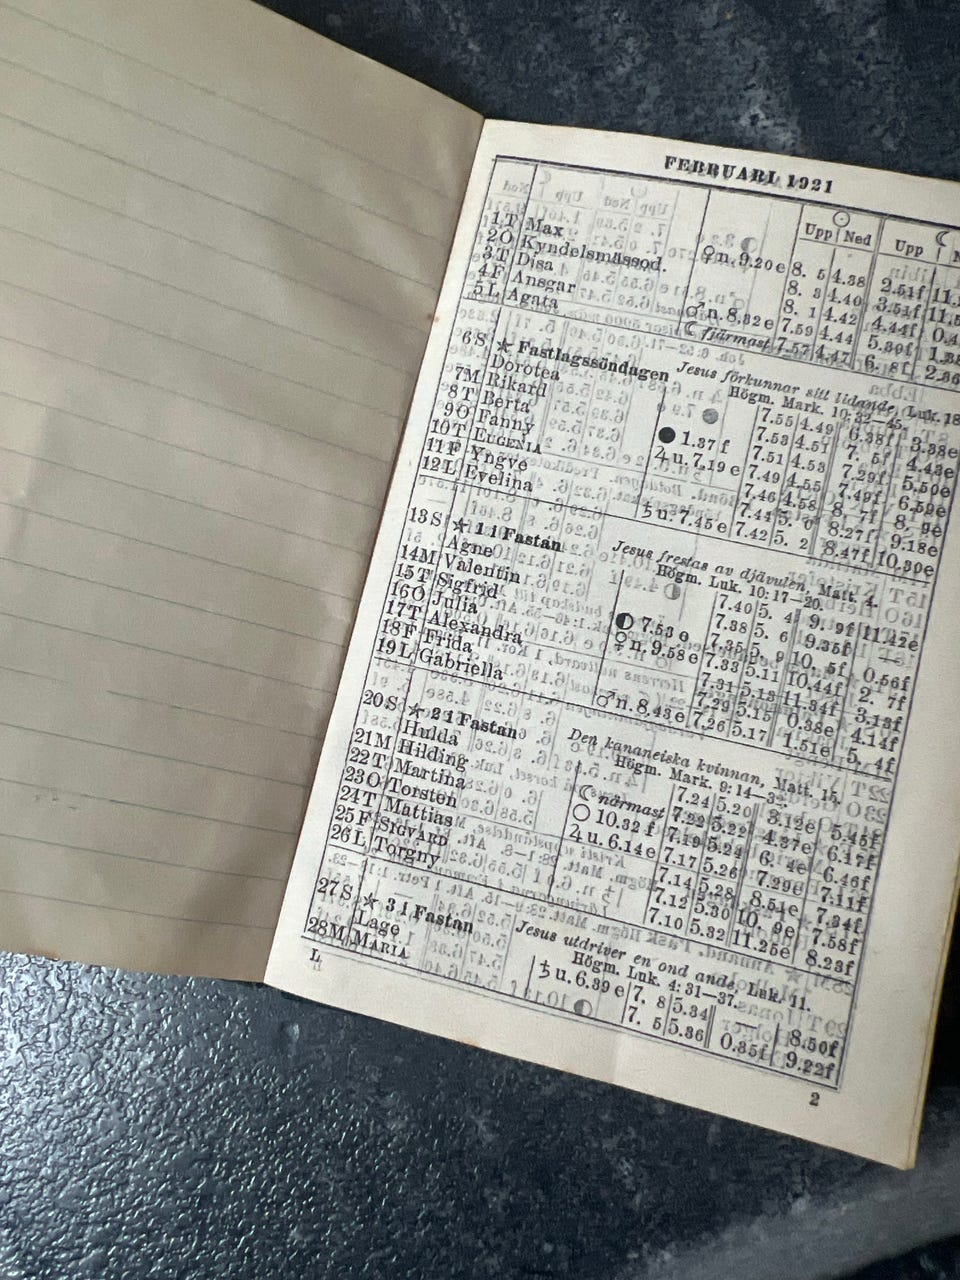 FEBRUARI 1921
☉ ☾
Upp Ned Upp
1 T Max ♀ n. 9.20 e 8. 5 4.38 2.51f
2 O Kyndelsmässod. 8. 3 4.40 3.51f
3 T Disa 8. 1 4.42 4.44f
4 F Ansgar ♂ n. 8.32 e 7.59 4.44 5.30f
5 L Agata ☾ fjärmast 7.57 4.47 6. 8f
Jesus förkunnar sitt lidande, Luk. 18
6 S ★ Fastlagssöndagen Högm. Mark. 10:32—45.
Dorotea 7.55 4.49 6.38f 3.38e
7 M Rikard ● 1.37 f 7.53 4.51 7. 5f 4.43e
8 T Berta ♃ u. 7.19 e 7.51 4.53 7.29f 5.50e
9 O Fanny 7.49 4.55 7.49f 6.59e
10 T EUGENIA 7.46 4.58 8. 7f 8. 9e
11 F Yngve 7.44 5. 0 8.27f 9.18e
12 L Evelina ♄ u. 7.45 e 7.42 5. 2 8.47f 10.30e
Jesus frestas av djävulen, Matt. 4.
13 S ★ 1 i Fastan Högm. Luk. 10:17—20.
Agne 7.40 5. 4 9. 9f 11.42e
14 M Valentin 7.38 5. 6 9.35f —
15 T Sigfrid ◐ 7.53 e 7.35 5. 9 10. 5f 0.56f
16 O Julia ☿ n. 9.58 e 7.33 5.11 10.44f 2. 7f
17 T Alexandra 7.31 5.13 11.34f 3.13f
18 F Frida 7.29 5.15 0.38e 4.14f
19 L Gabriella ♂ n. 8.43 e 7.26 5.17 1.51e 5. 4f
Den kananeiska kvinnan, Matt. 15.
20 S ★ 2 i Fastan Högm. Mark. 9:14—32.
Hulda 7.24 5.20 3.12e 5.45f
21 M Hilding ☾ närmast 7.22 5.22 4.37e 6.17f
22 T Martina ○ 10.32 f 7.19 5.24 6. 4e 6.46f
23 O Torsten ♃ u. 6.14 e 7.17 5.26 7.29e 7.11f
24 T Mattias 7.14 5.28 8.51e 7.34f
25 F SIGVARD 7.12 5.30 10. 9e 7.58f
26 L Torgny 7.10 5.32 11.25e 8.23f
Jesus utdriver en ond ande, Luk. 11.
27 S ★ 3 i Fastan Högm. Luk. 4:31—37.
Lage ♄ u. 6.39 e 7. 8 5.34 8.50f
28 M MARIA 7. 5 5.36 0.35f 9.22f
2